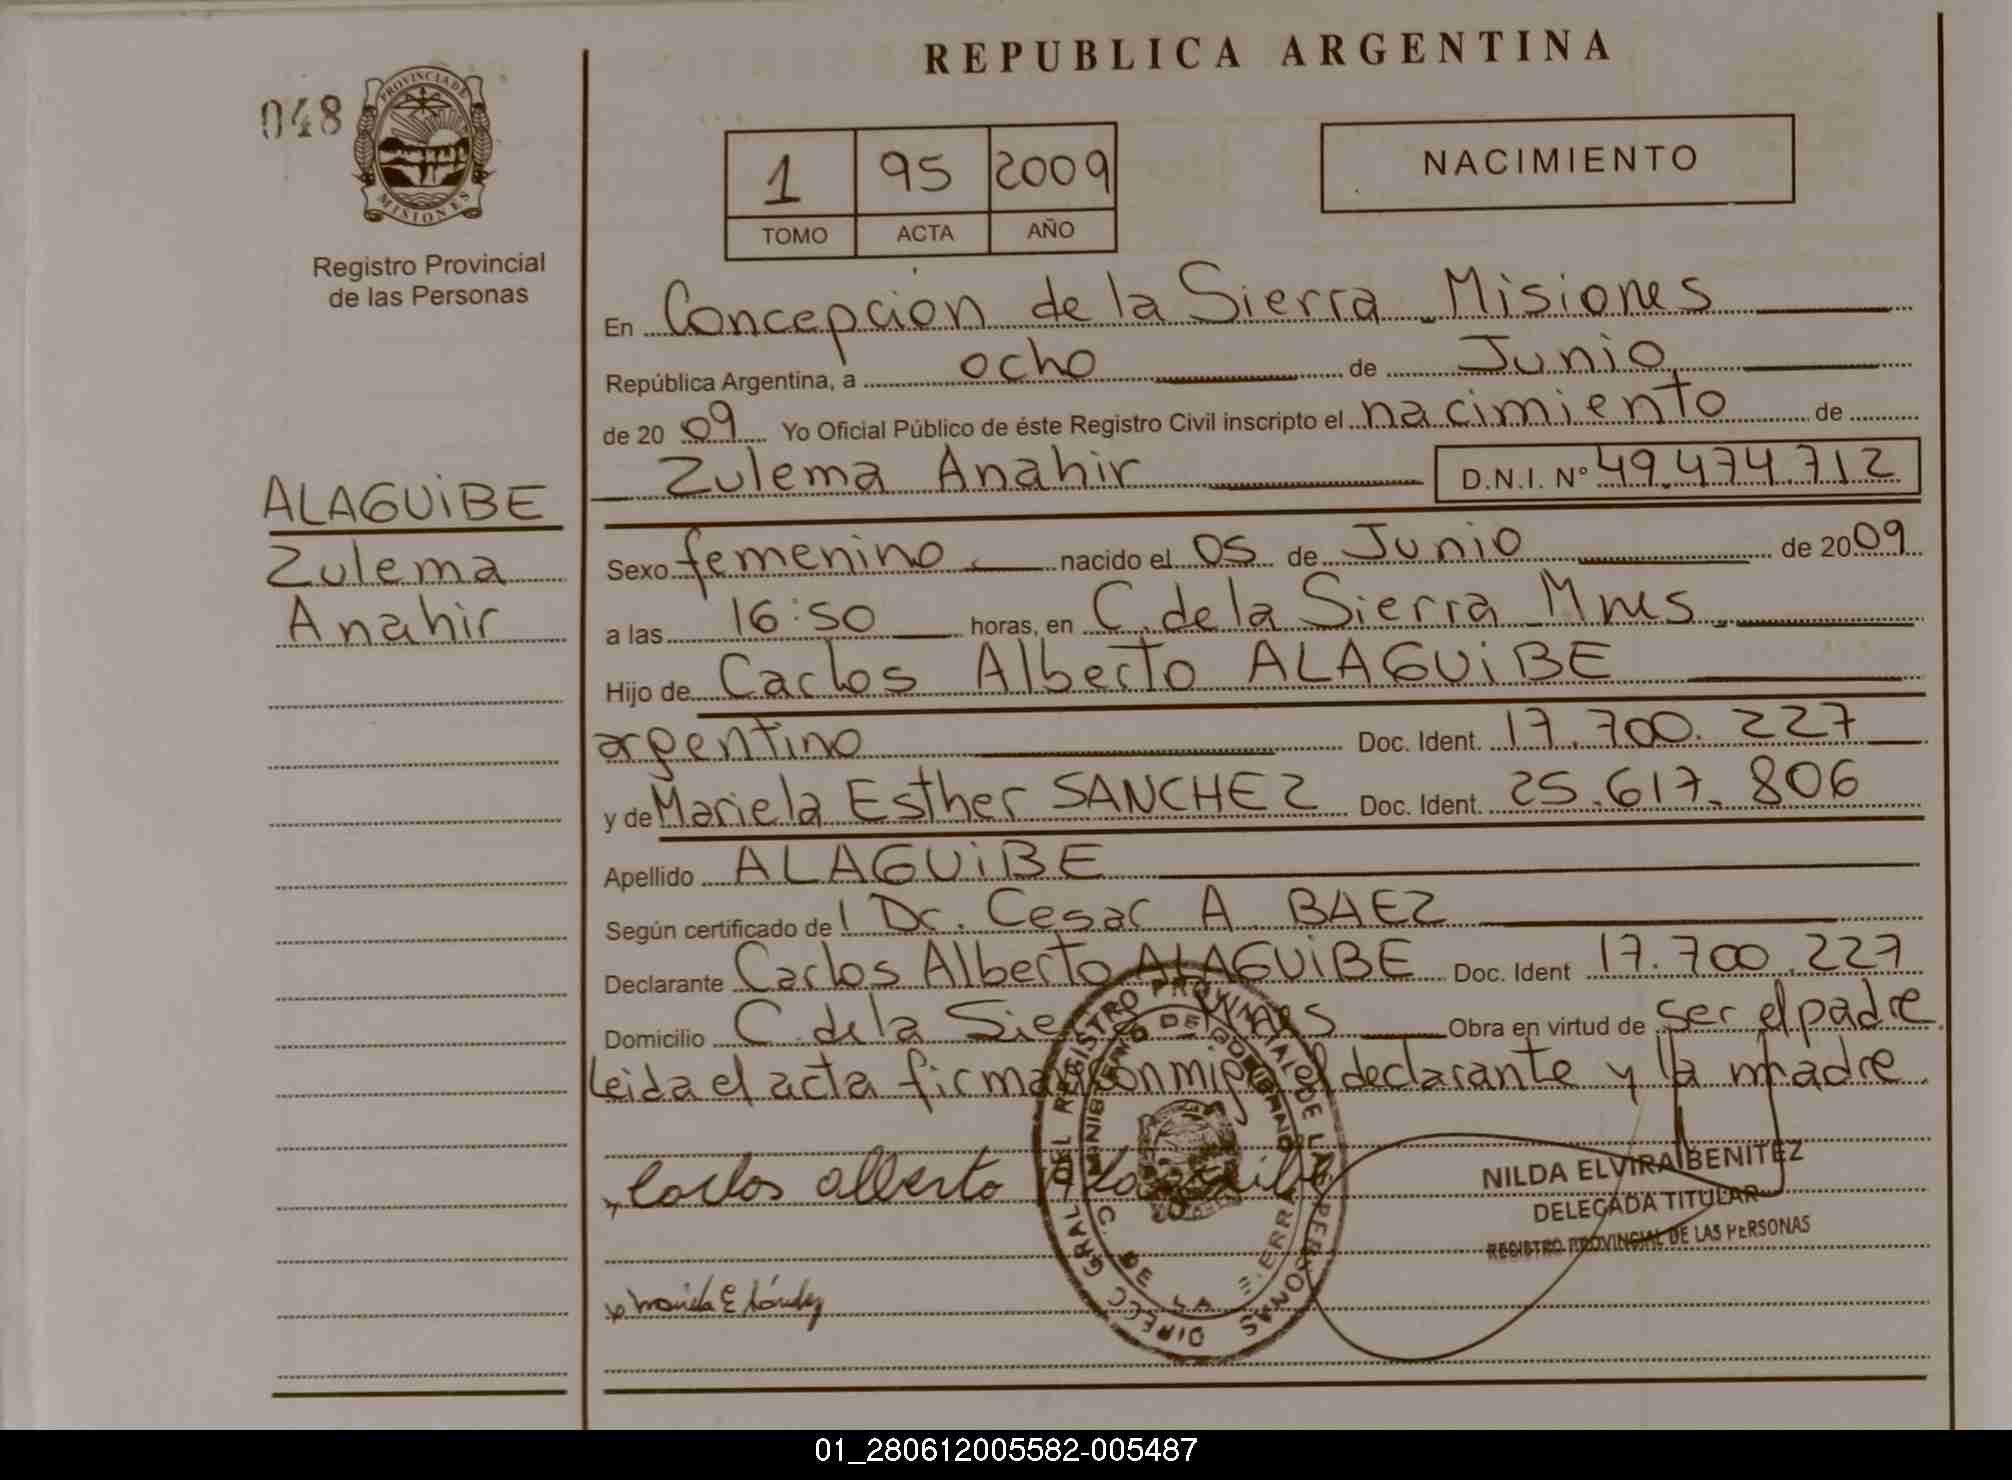 REPUBLICA ARGENTINA
048
PROVINCIA DE
MISIONES
Registro Provincial
de las Personas
1 95 2009
TOMO ACTA AÑO
NACIMIENTO
En Concepcion de la Sierra Misiones
República Argentina, a ocho de Junio
de 2009 Yo Oficial Público de éste Registro Civil inscripto el nacimiento de
Zulema Anahir D.N.I. Nº 49.474.712
ALAGUiBE
Zulema
Anahir
Sexo femenino nacido el 05 de Junio de 2009
a las 16:50 horas, en C. de la Sierra Mnes
Hijo de Carlos Alberto ALAGUiBE
argentino Doc. Ident. 17.700.227
y de Mariela Esther SANCHEZ Doc. Ident. 25.617.806
Apellido ALAGUiBE
Según certificado de l Dr. Cesar A. BAEZ
Declarante Carlos Alberto ALAGUiBE Doc. Ident 17.700.227
Domicilio C. de la Obra en virtud de ser el padre
Leida el acta firman conmigo el declarante y la madre
Carlos alberto
DIRECC GRAL DEL REGISTRO PROVINCIAL DE LAS PERSONAS
MINISTERIO DE GOBIERNO
C. DE LA SIERRA
NILDA ELVIRA BENITEZ
DELEGADA TITULAR
REGISTRO PROVINCIAL DE LAS PERSONAS
Mariela E Sánchez
01_280612005582-005487